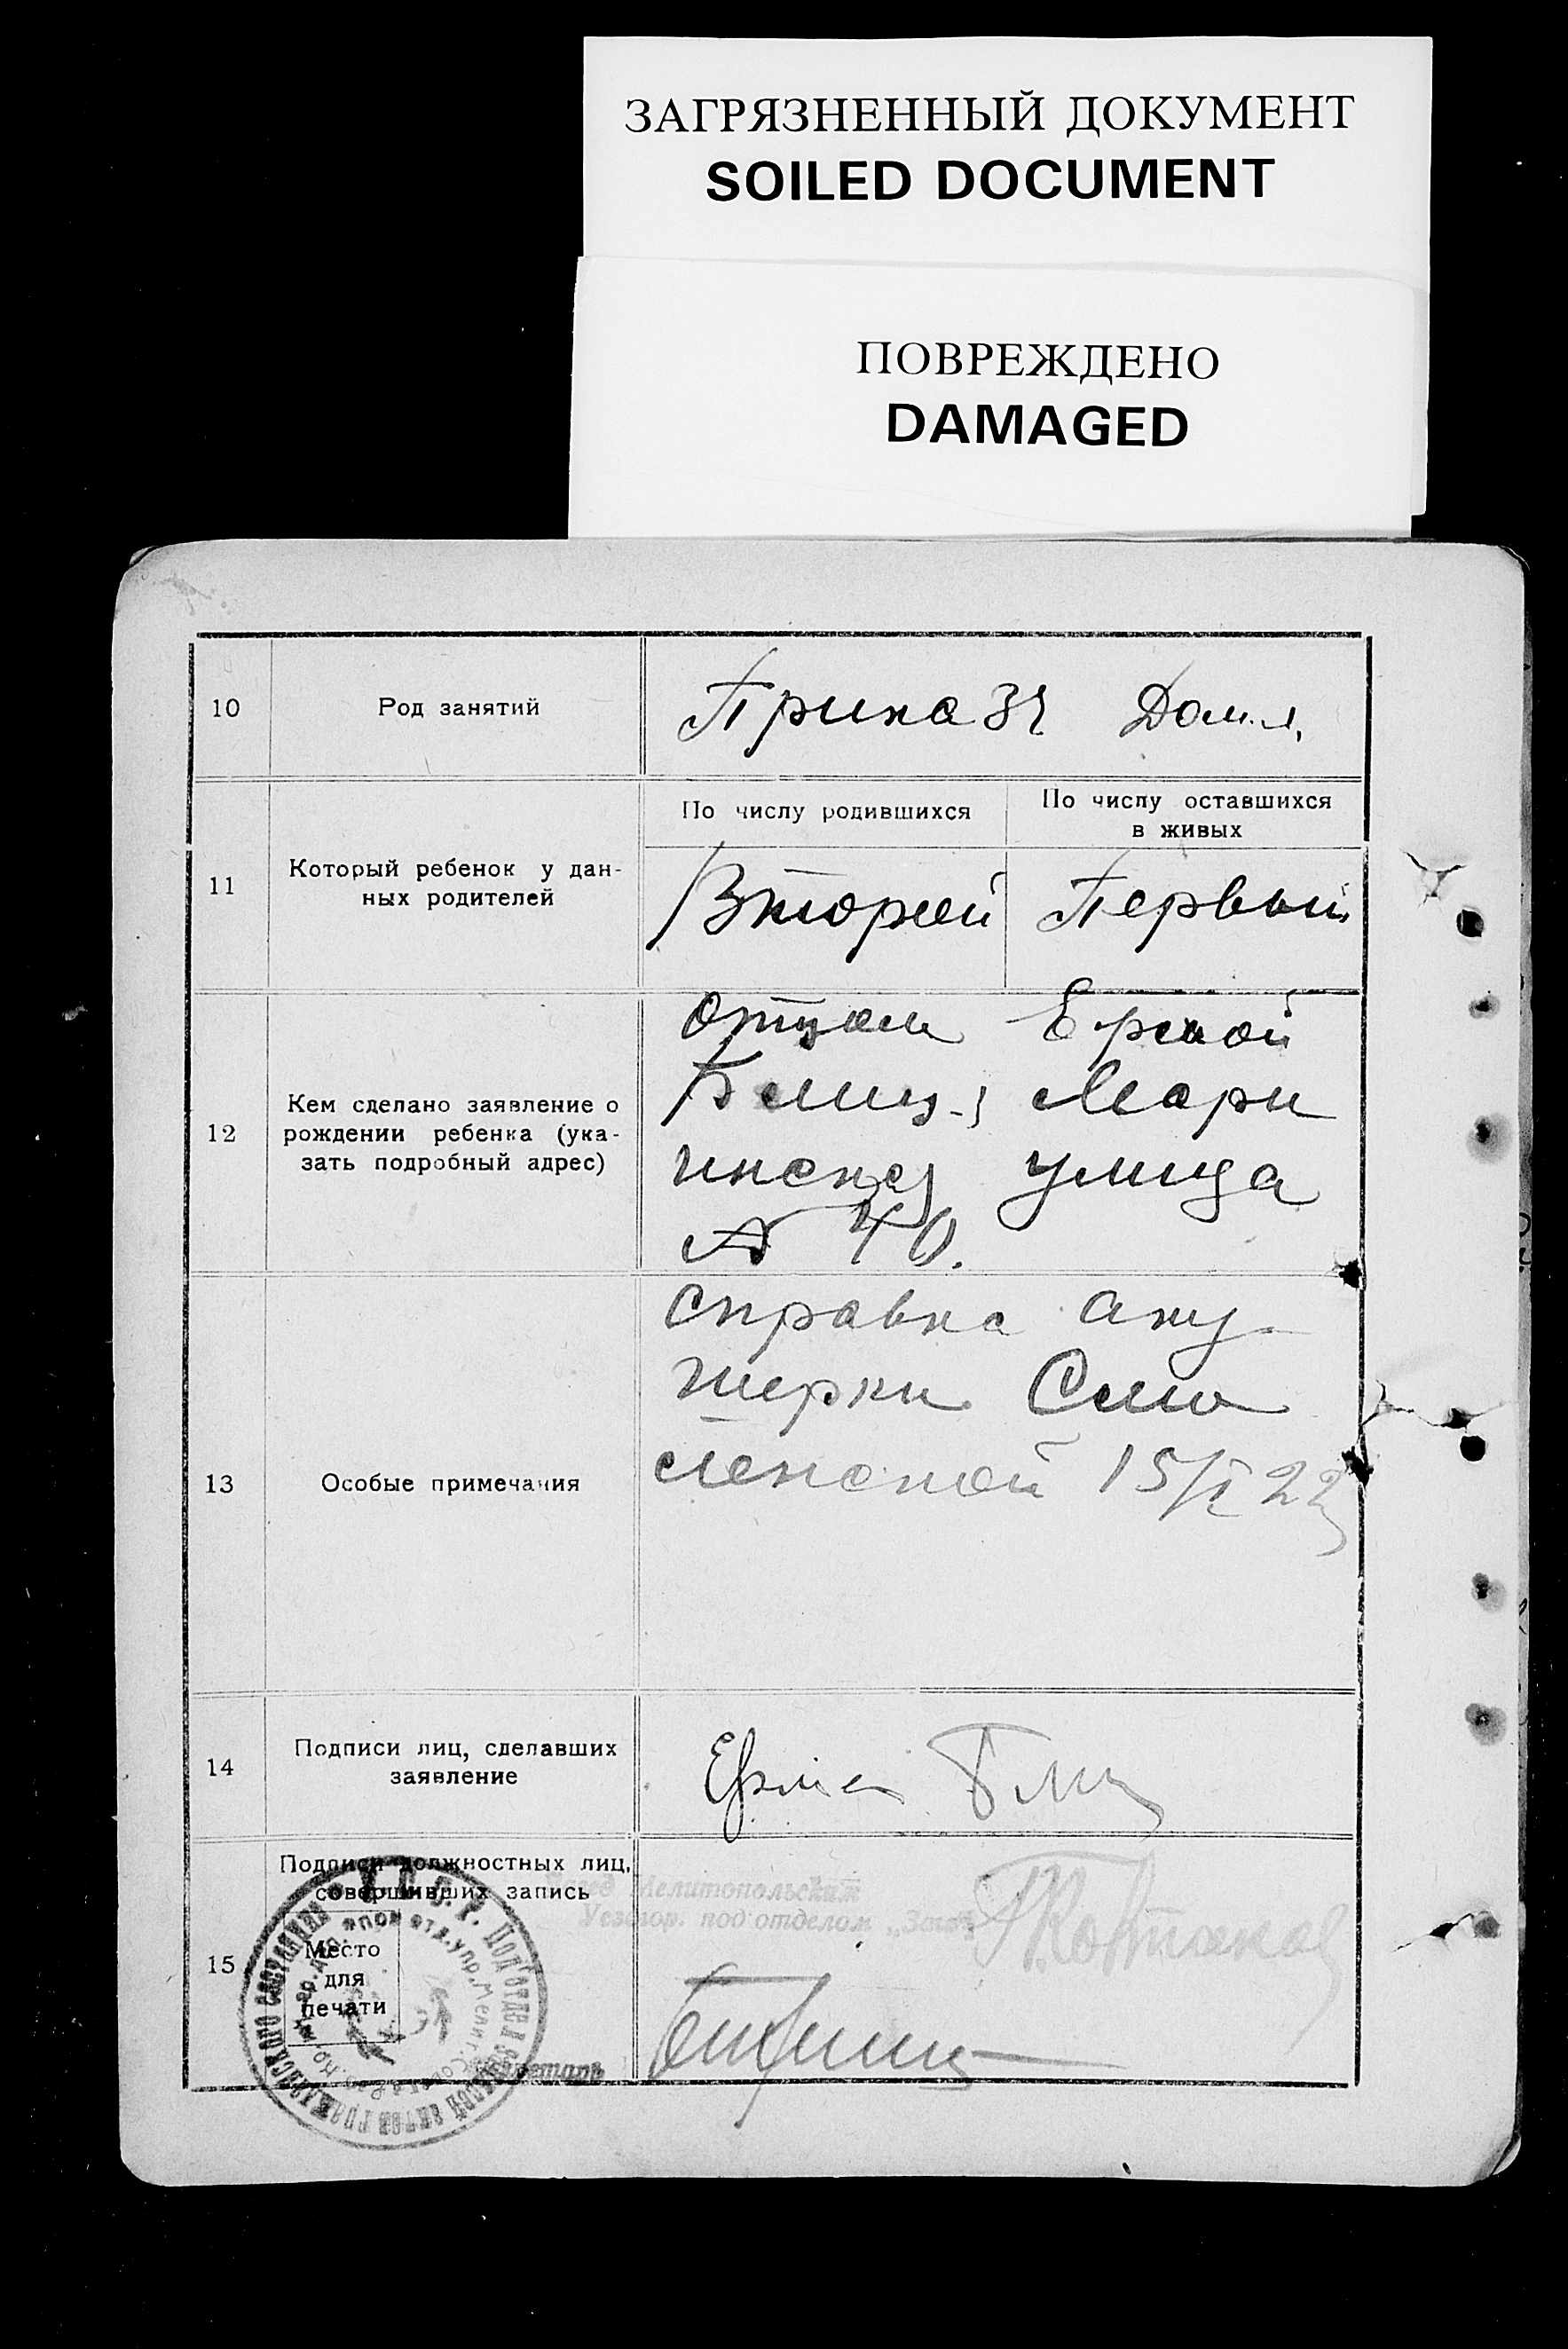 ЗАГРЯЗНЕННЫЙ ДОКУМЕНТ
SOILED DOCUMENT
ПОВРЕЖДЕНО
DAMAGED
10 Род занятий Приказч Дом.
11 Который ребенок у дан-
ных родителей
По числу родившихся
Второй
По числу оставшихся
в живых
Первый
12 Кем сделано заявление о
рождении ребенка (ука-
зать подробный адрес)
отцом
Мари
инская улица
№ 40.
13 Особые примечания
Справка аку-
шерки Смо
ленской 15/I 22
14 Подписи лиц, сделавших
заявление
15 Подписи должностных лиц,
совершивших запись
Место
для
печати
Завед Мелитопольским
Уезгор. подотделом „Загс"
Секретарь